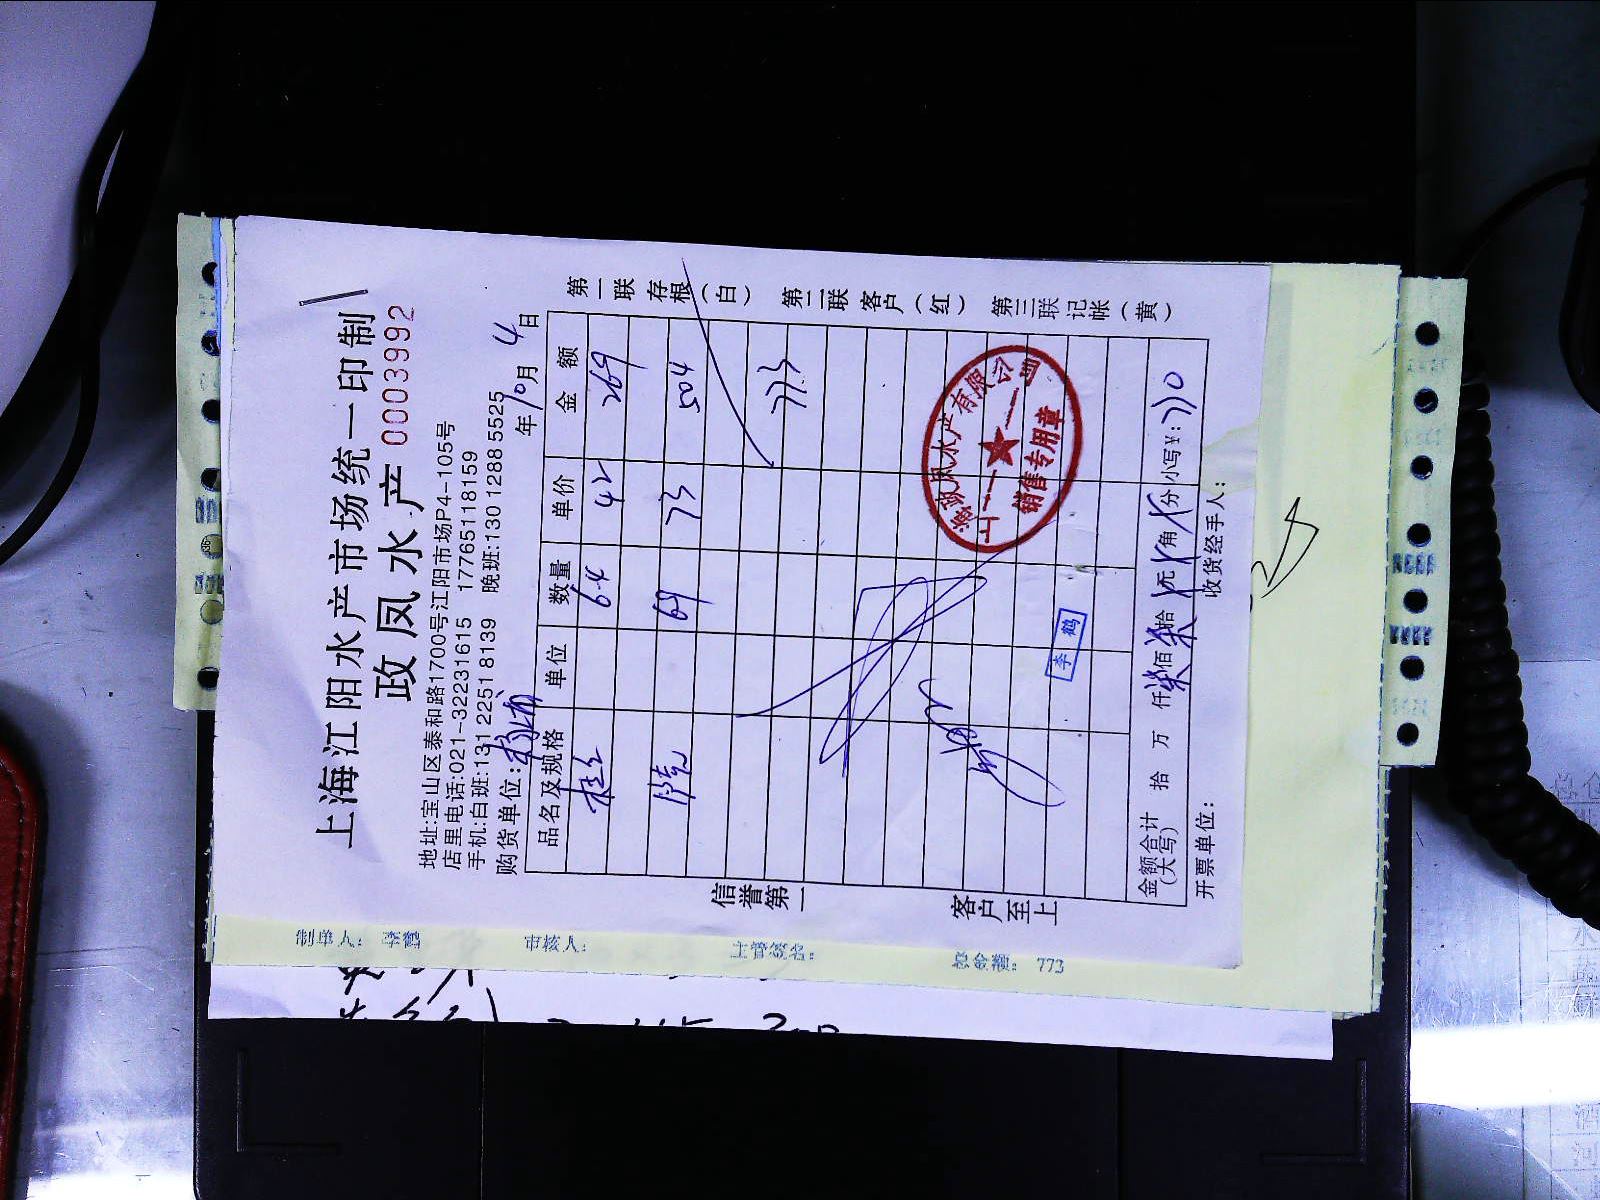 上海江阳水产市场统一印制
政凤水产 0003992
地址:宝山区泰和路1700号江阳市场P4-105号
店里电话:021-32231615 17765118159
手机:白班:13122518139 晚班:13012885525
购货单位: 年10月4日
品名及规格 单位 数量 单价 金额
桂 6.4 42 269
69 73 504
773
第一联存根(白) 第二联客户(红) 第三联记帐(黄)
信誉第一
客户至上
上海政凤水产有限公司
销售专用章
李鹤
金额合计(大写) 拾 万 仟柒佰柒拾 元 角 分 小写¥:770
开票单位: 收货经手人:
制单人: 李鹤 审核人: 主管签名: 总金额: 773